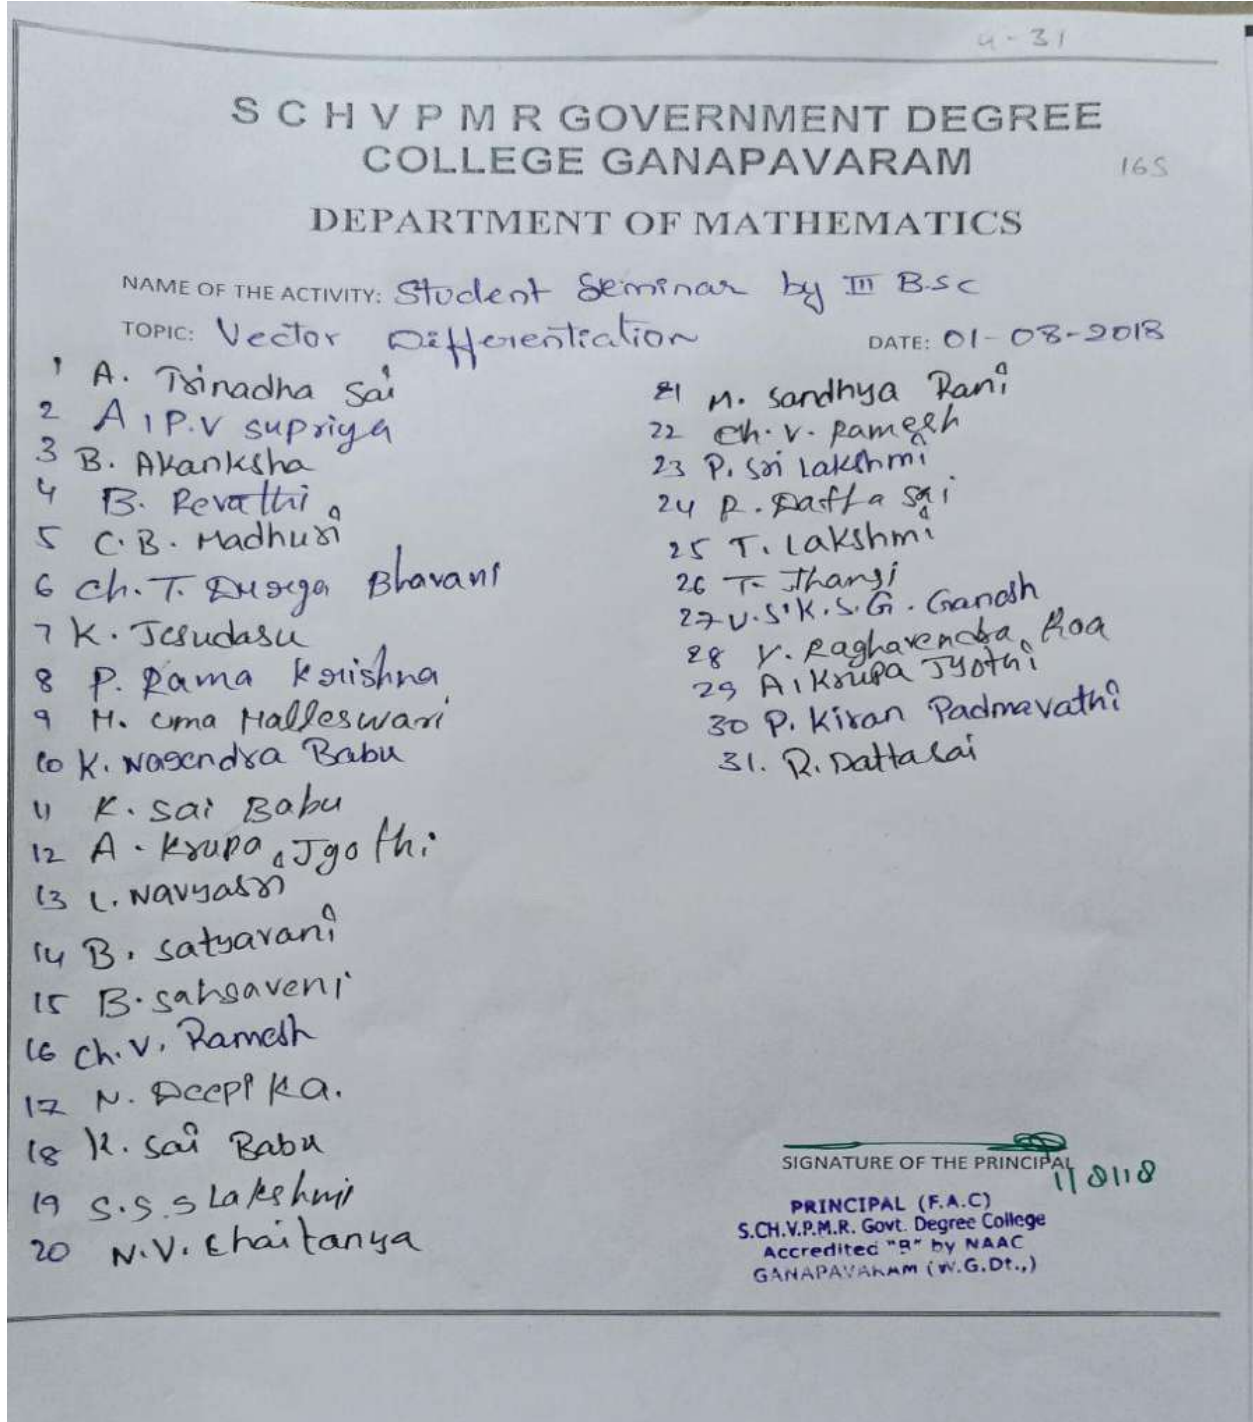 4-31
S C H V P M R GOVERNMENT DEGREE
COLLEGE GANAPAVARAM
165
DEPARTMENT OF MATHEMATICS
NAME OF THE ACTIVITY: Student Seminar by III B.Sc
TOPIC: Vector Differentiation
DATE: 01-08-2018
1 A. Trinadha Sai
2 A.P.V Supriya
3 B. Akanksha
4 B. Revathi
5 C.B. Madhuri
6 Ch. T. Durga Bhavani
7 K. Jesudasu
8 P. Rama Krishna
9 M. Uma Malleswari
10 K. Nagendra Babu
11 K. Sai Babu
12 A. Krupa Jyothi
13 L. Navyasri
14 B. Satyavani
15 B.
16 Ch. V. Ramesh
17 N. Deepika.
18 K. Sai Babu
19 S.S.S Lakshmi
20 N.V. Chaitanya
21 M. Sandhya Rani
22 Ch. V. Ramesh
23 P. Sri Lakshmi
24 R. Datta Sai
25 T. Lakshmi
26 T. Jhansi
27 V.S.K.S.G. Ganesh
28 V. Raghavendra Roa
29 A. Krupa Jyothi
30 P. Kiran Padmavathi
31. R. Datta Sai
SIGNATURE OF THE PRINCIPAL
1/8/18
PRINCIPAL (F.A.C)
S.CH.V.P.M.R. Govt. Degree College
Accredited "B" by NAAC
GANAPAVARAM (W.G.Dt.,)